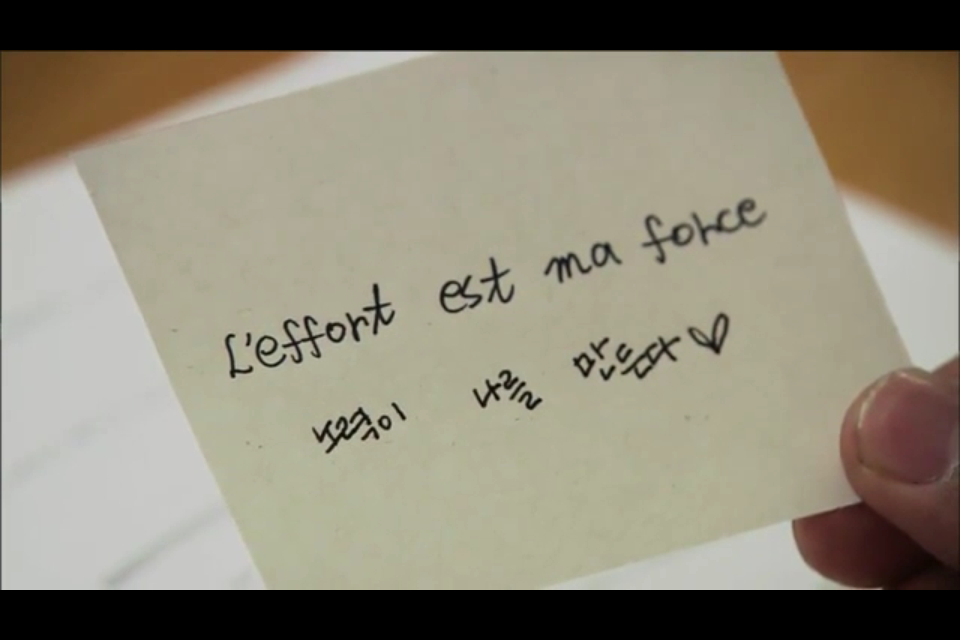 L'effort est ma force
노력이 나를 만든다♡